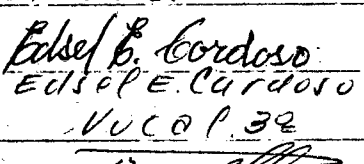 Edsel E. Cordoso
Edsel E. Cardoso
Vocal. 3ª